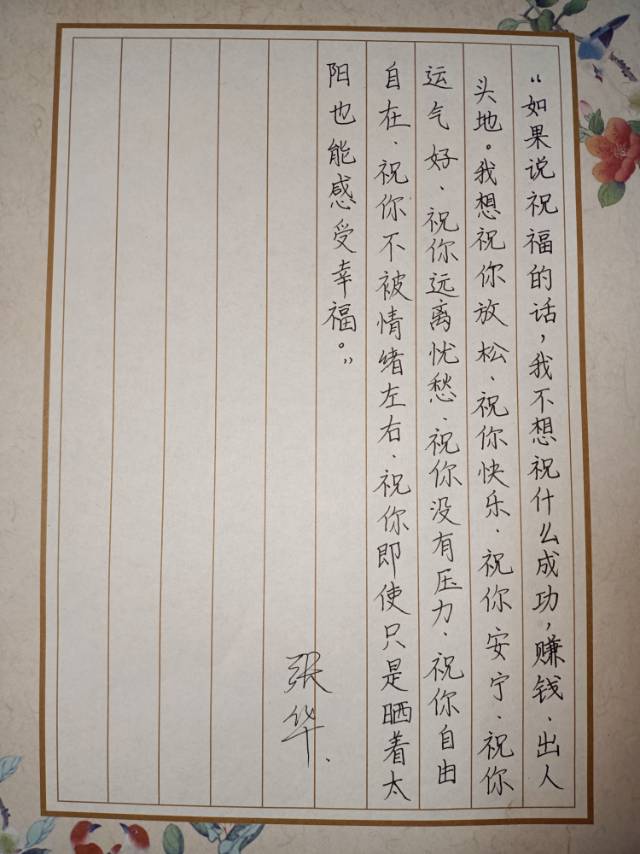 “如果说祝福的话，我不想祝什么成功，赚钱、出人
头地。我想祝你放松、祝你快乐、祝你安宁、祝你
运气好、祝你远离忧愁、祝你没有压力、祝你自由
自在、祝你不被情绪左右、祝你即使只是晒着太
阳也能感受幸福。”
张华.